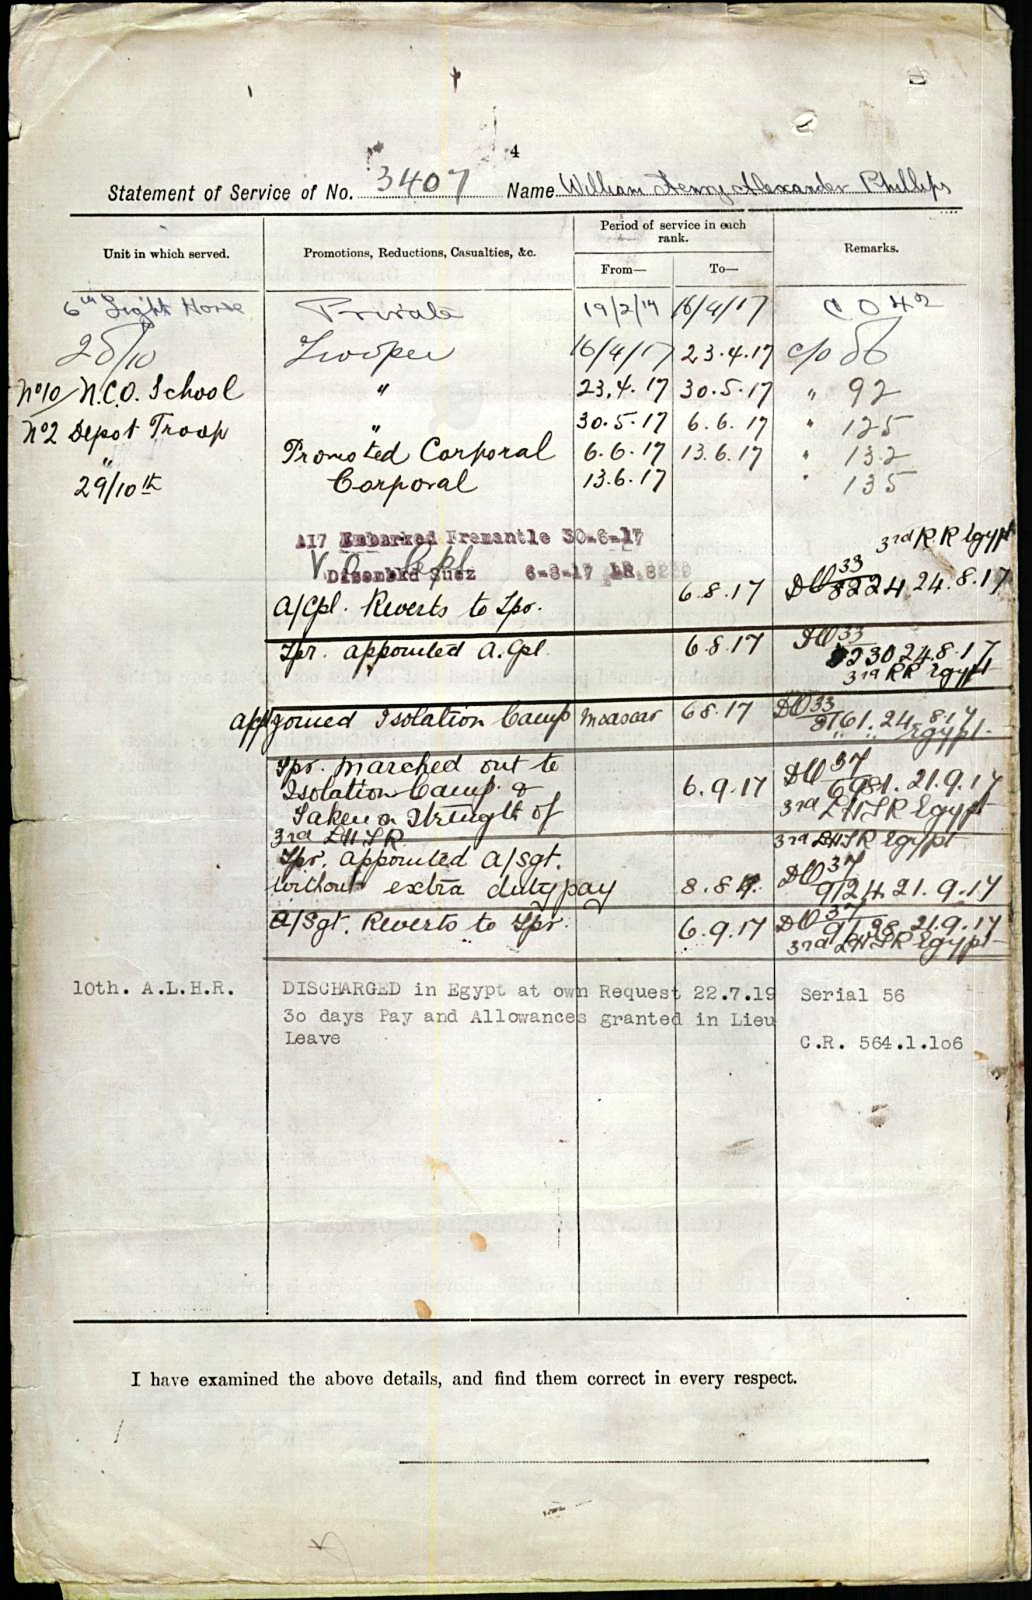 4
Statement of Service of No. 3407 Name William Henry Alexander Phillips
Unit in which served. Promotions, Reductions, Casualties, &c. Period of service in each rank. From— To— Remarks.
6th Light Horse Private 19/2/17 16/4/17 C O 42
28/10 Trooper 16/4/17 23.4.17 c/o 56
No10 N.C.O. School " 23.4.17 30.5.17 " 92
No2 Depot Troop " 30.5.17 6.6.17 " 125
" Promoted Corporal 6.6.17 13.6.17 " 132
29/10th Corporal 13.6.17 " 135
A17 Embarked Fremantle 30-6-17
3rd RR Egypt
Disembkd Suez 6-8-17 LR
A/Cpl. Reverts to Tpr. 6.8.17 DO33 8224 24.8.17
Tpr. appointed A.Cpl 6.8.17 DO33 8230 24.8.17
3rd RR Egypt
joined Isolation Camp Moascar 6.8.17 DO33 8161. 24.8.17
Egypt.
Tpr. Marched out to
Isolation Camp & 6.9.17 DO37 6981. 21.9.17
Taken on Strength of 3rd LHTR Egypt
3rd LHTR
3rd LHTR Egypt
Tpr. appointed A/Sgt.
without extra duty pay 8.8.17 DO37 9124 21.9.17
A/Sgt. Reverts to Tpr. 6.9.17 DO37 9198 21.9.17
3rd LHTR Egypt
10th. A.L.H.R. DISCHARGED in Egypt at own Request 22.7.19 Serial 56
3o days Pay and Allowances granted in Lieu
Leave C.R. 564.1.1o6
I have examined the above details, and find them correct in every respect.